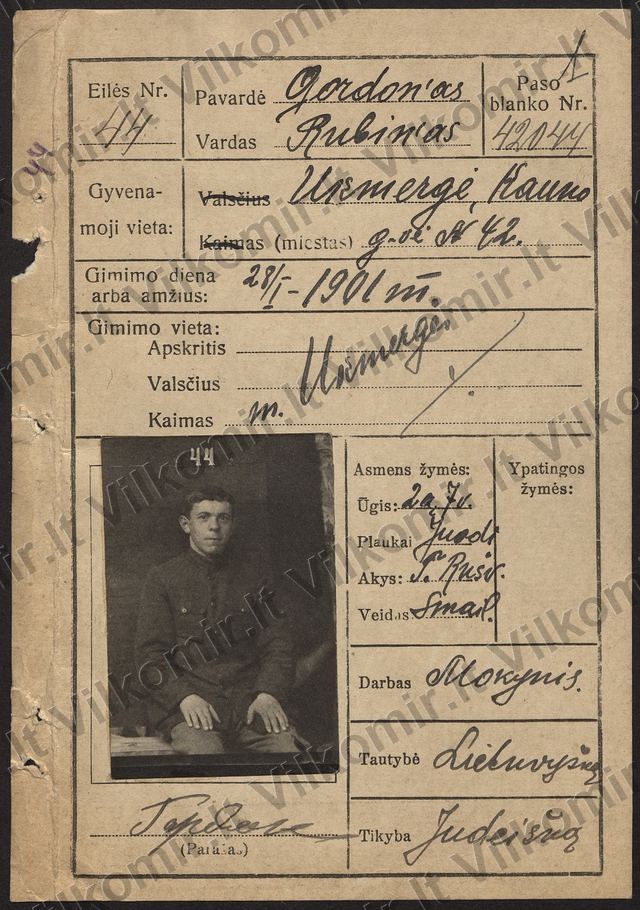 1
Eilės Nr. 44
Pavardė Gordon'as
Vardas Rubin'as
Paso blanko Nr. 42044
44
Gyvena-
moji vieta:
Valsčius Ukmergė, Kauno
Kaimas (miestas) g-vė N 42.
Gimimo diena
arba amžius: 28/I-1901 m.
Gimimo vieta:
Apskritis
Valsčius Ukmergė.
Kaimas m.
44
Asmens žymės:
Ūgis: 2a, 7v.
Plaukai Juodi
Akys: T. Rusv.
Veidas Smail.
Ypatingos
žymės:
Darbas Mokynis.
Tautybė Lietuvyšką
(Parašas)
Tikyba Judeišką
Vilkomir.lt